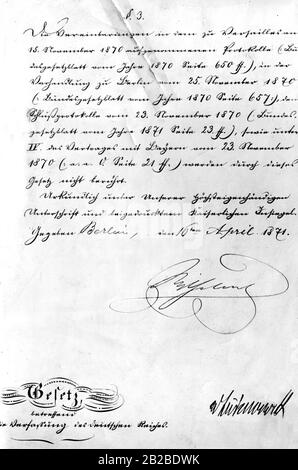 §. 3.
Die Vereinbarungen in dem zu Versailles am
15. November 1870 aufgenommenen Protokolle (Bun-
desgesetzblatt vom Jahre 1870 Seite 650 ff.), in der
Verhandlung zu Berlin vom 25. November 1870
(Bundesgesetzblatt vom Jahre 1870 Seite 657), dem
Schlußprotokolle vom 23. November 1870 (Bundes-
gesetzblatt vom Jahre 1871 Seite 23 ff.), sowie unter
IV. des Vertrages mit Bayern vom 23. November
1870 (a. a. O. Seite 21 ff.) werden durch dieses
Gesetz nicht berührt.
Urkundlich unter Unserer Höchsteigenhändigen
Unterschrift und beigedrucktem Kaiserlichen Insiegel.
Gegeben Berlin, den 16ten April 1871.
Wilhelm
Gesetz
betreffend
die Verfassung des deutschen Reiches.
alamy
Image ID: 2B2BDWK
www.alamy.com